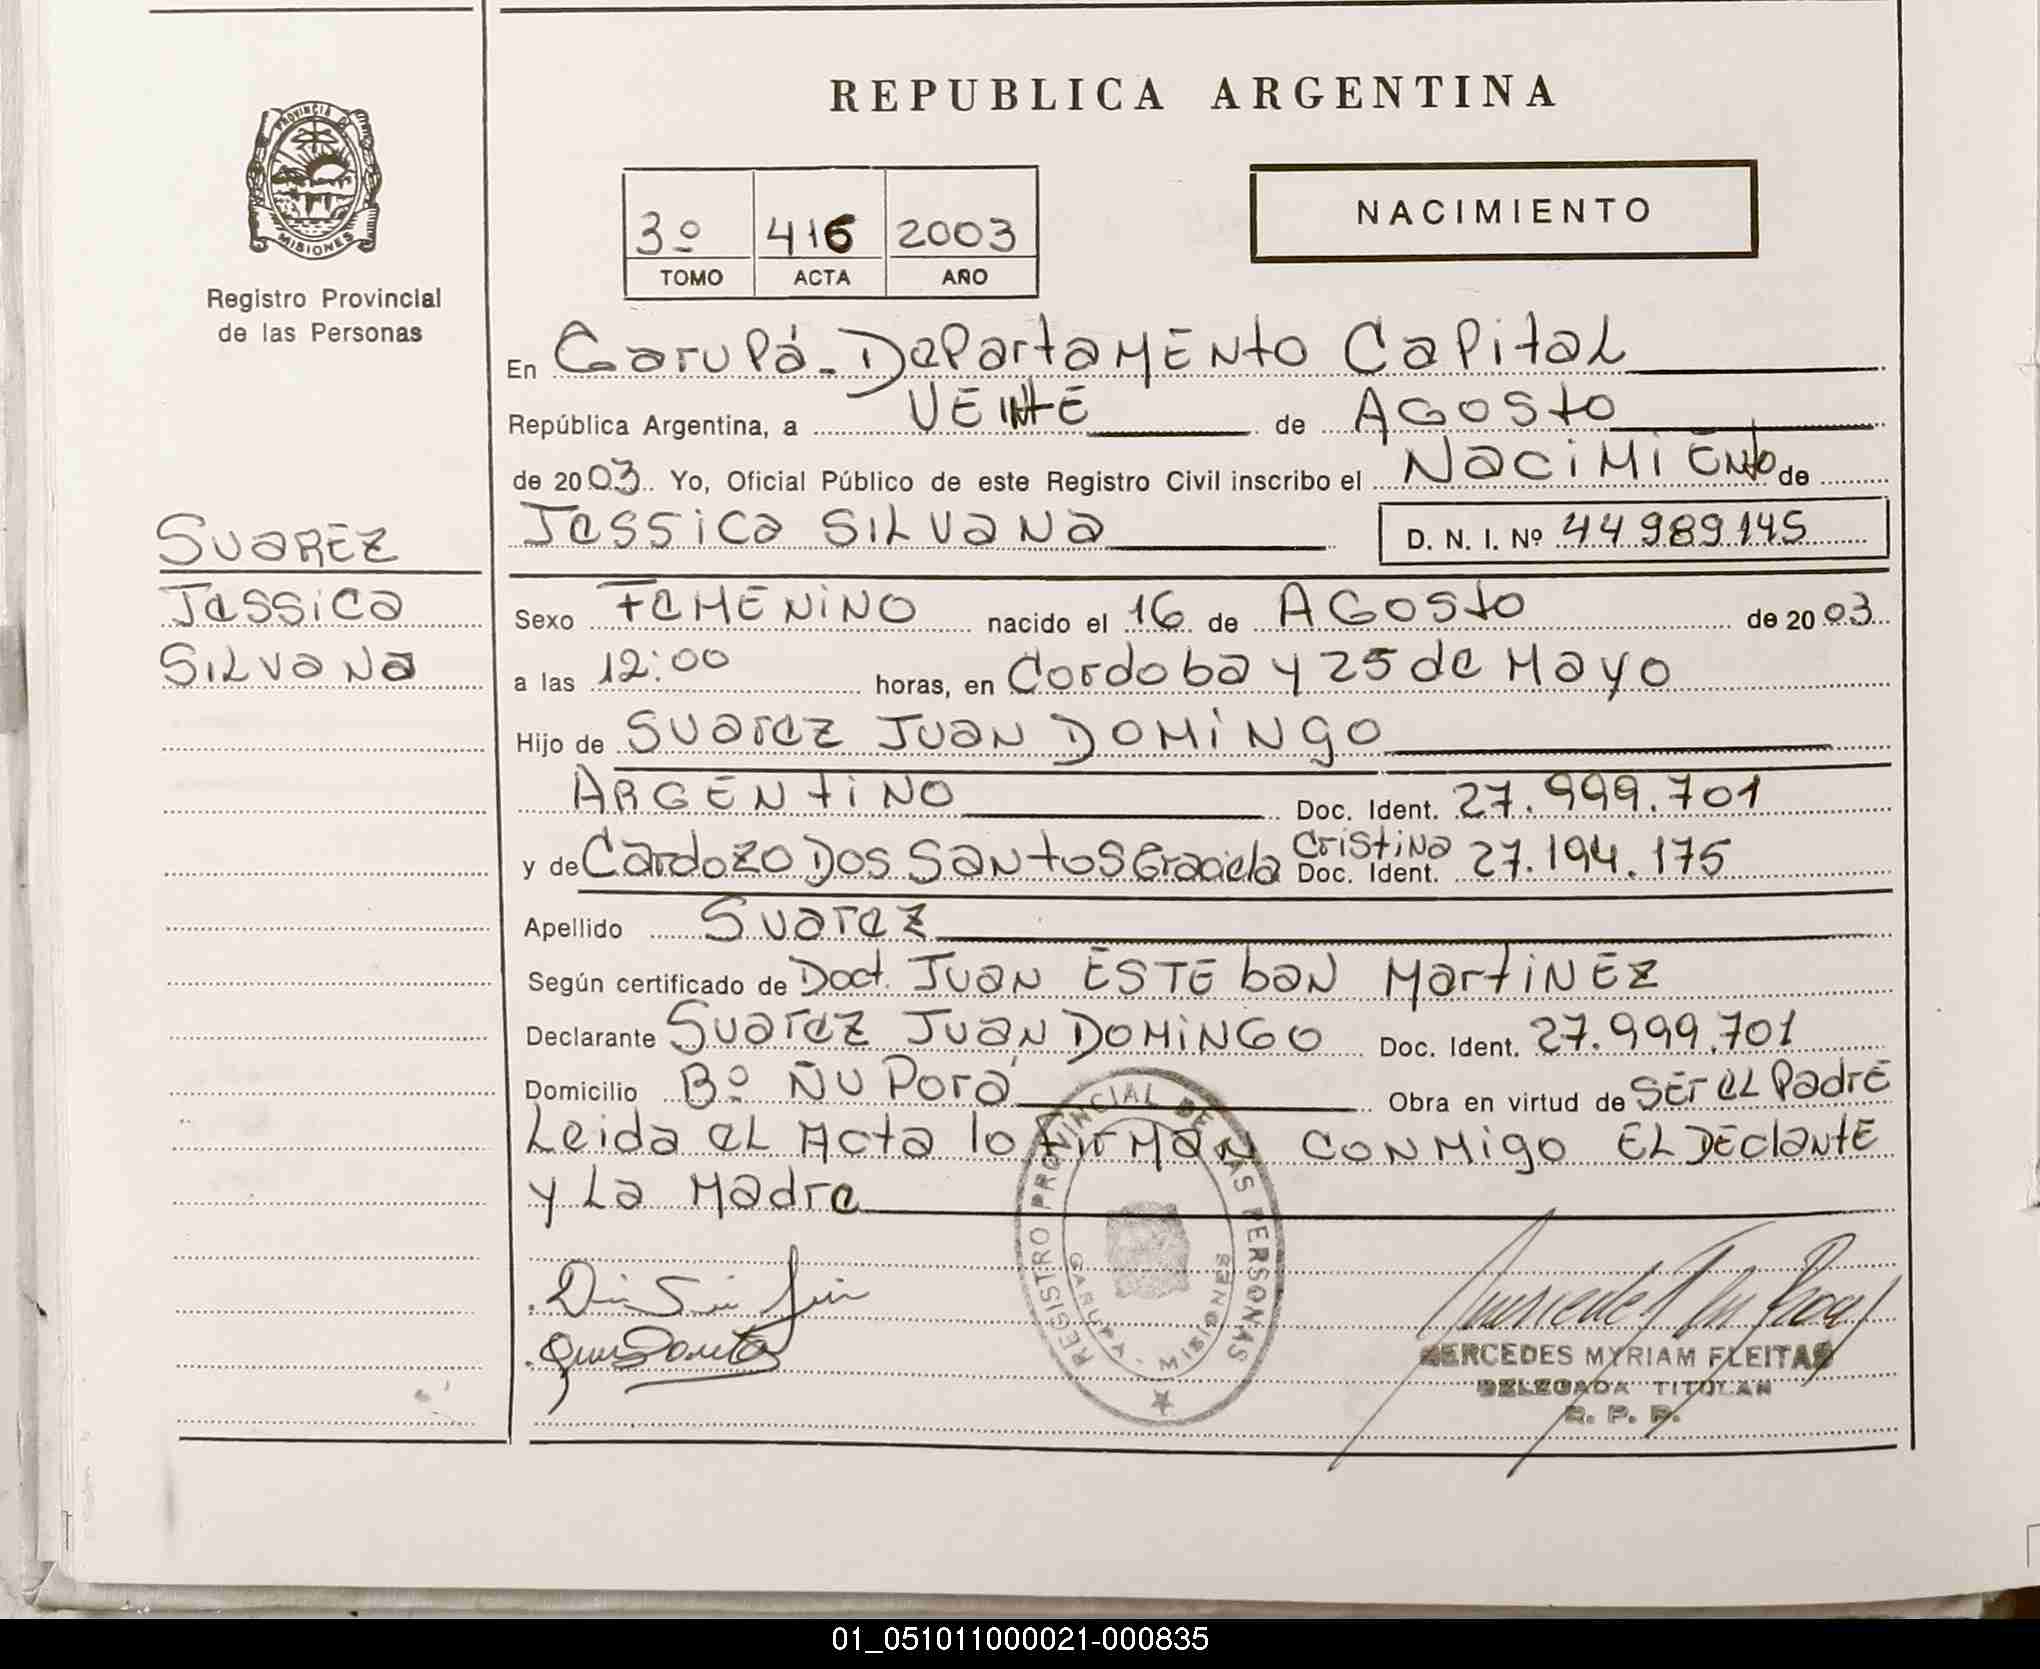 REPUBLICA ARGENTINA
PROVINCIA DE
MISIONES
Registro Provincial
de las Personas
3º 416 2003
TOMO ACTA AÑO
NACIMIENTO
En Garupá - Departamento Capital
República Argentina, a VEINTE de AGosto
de 2003. Yo, Oficial Público de este Registro Civil inscribo el Nacimiento de
Jessica Silvana D. N. I. Nº 44989145
SUAREZ
Jessica
Silvana
Sexo FEMENINO nacido el 16 de AGosto de 2003
a las 12:00 horas, en Cordoba y 25 de Mayo
Hijo de Suarez Juan Domingo
ARGENTINO Doc. Ident. 27.999.701
y de Cardozo Dos Santos Graciela Cristina Doc. Ident. 27.194.175
Apellido Suarez
Según certificado de Doct. Juan ESTEban MartiNEz
Declarante Suarez Juan DOMINGO Doc. Ident. 27.999.701
Domicilio Bº Ñu Porá Obra en virtud de SEr el PadrE
Leida el Acta lo firman conmigo EL DEclantE
y La Madre
REGISTRO PROVINCIAL DE LAS PERSONAS
GARUPA - MISIONES
MERCEDES MYRIAM FLEITAS
DELEGADA TITULAR
R. P. P.
01_051011000021-000835